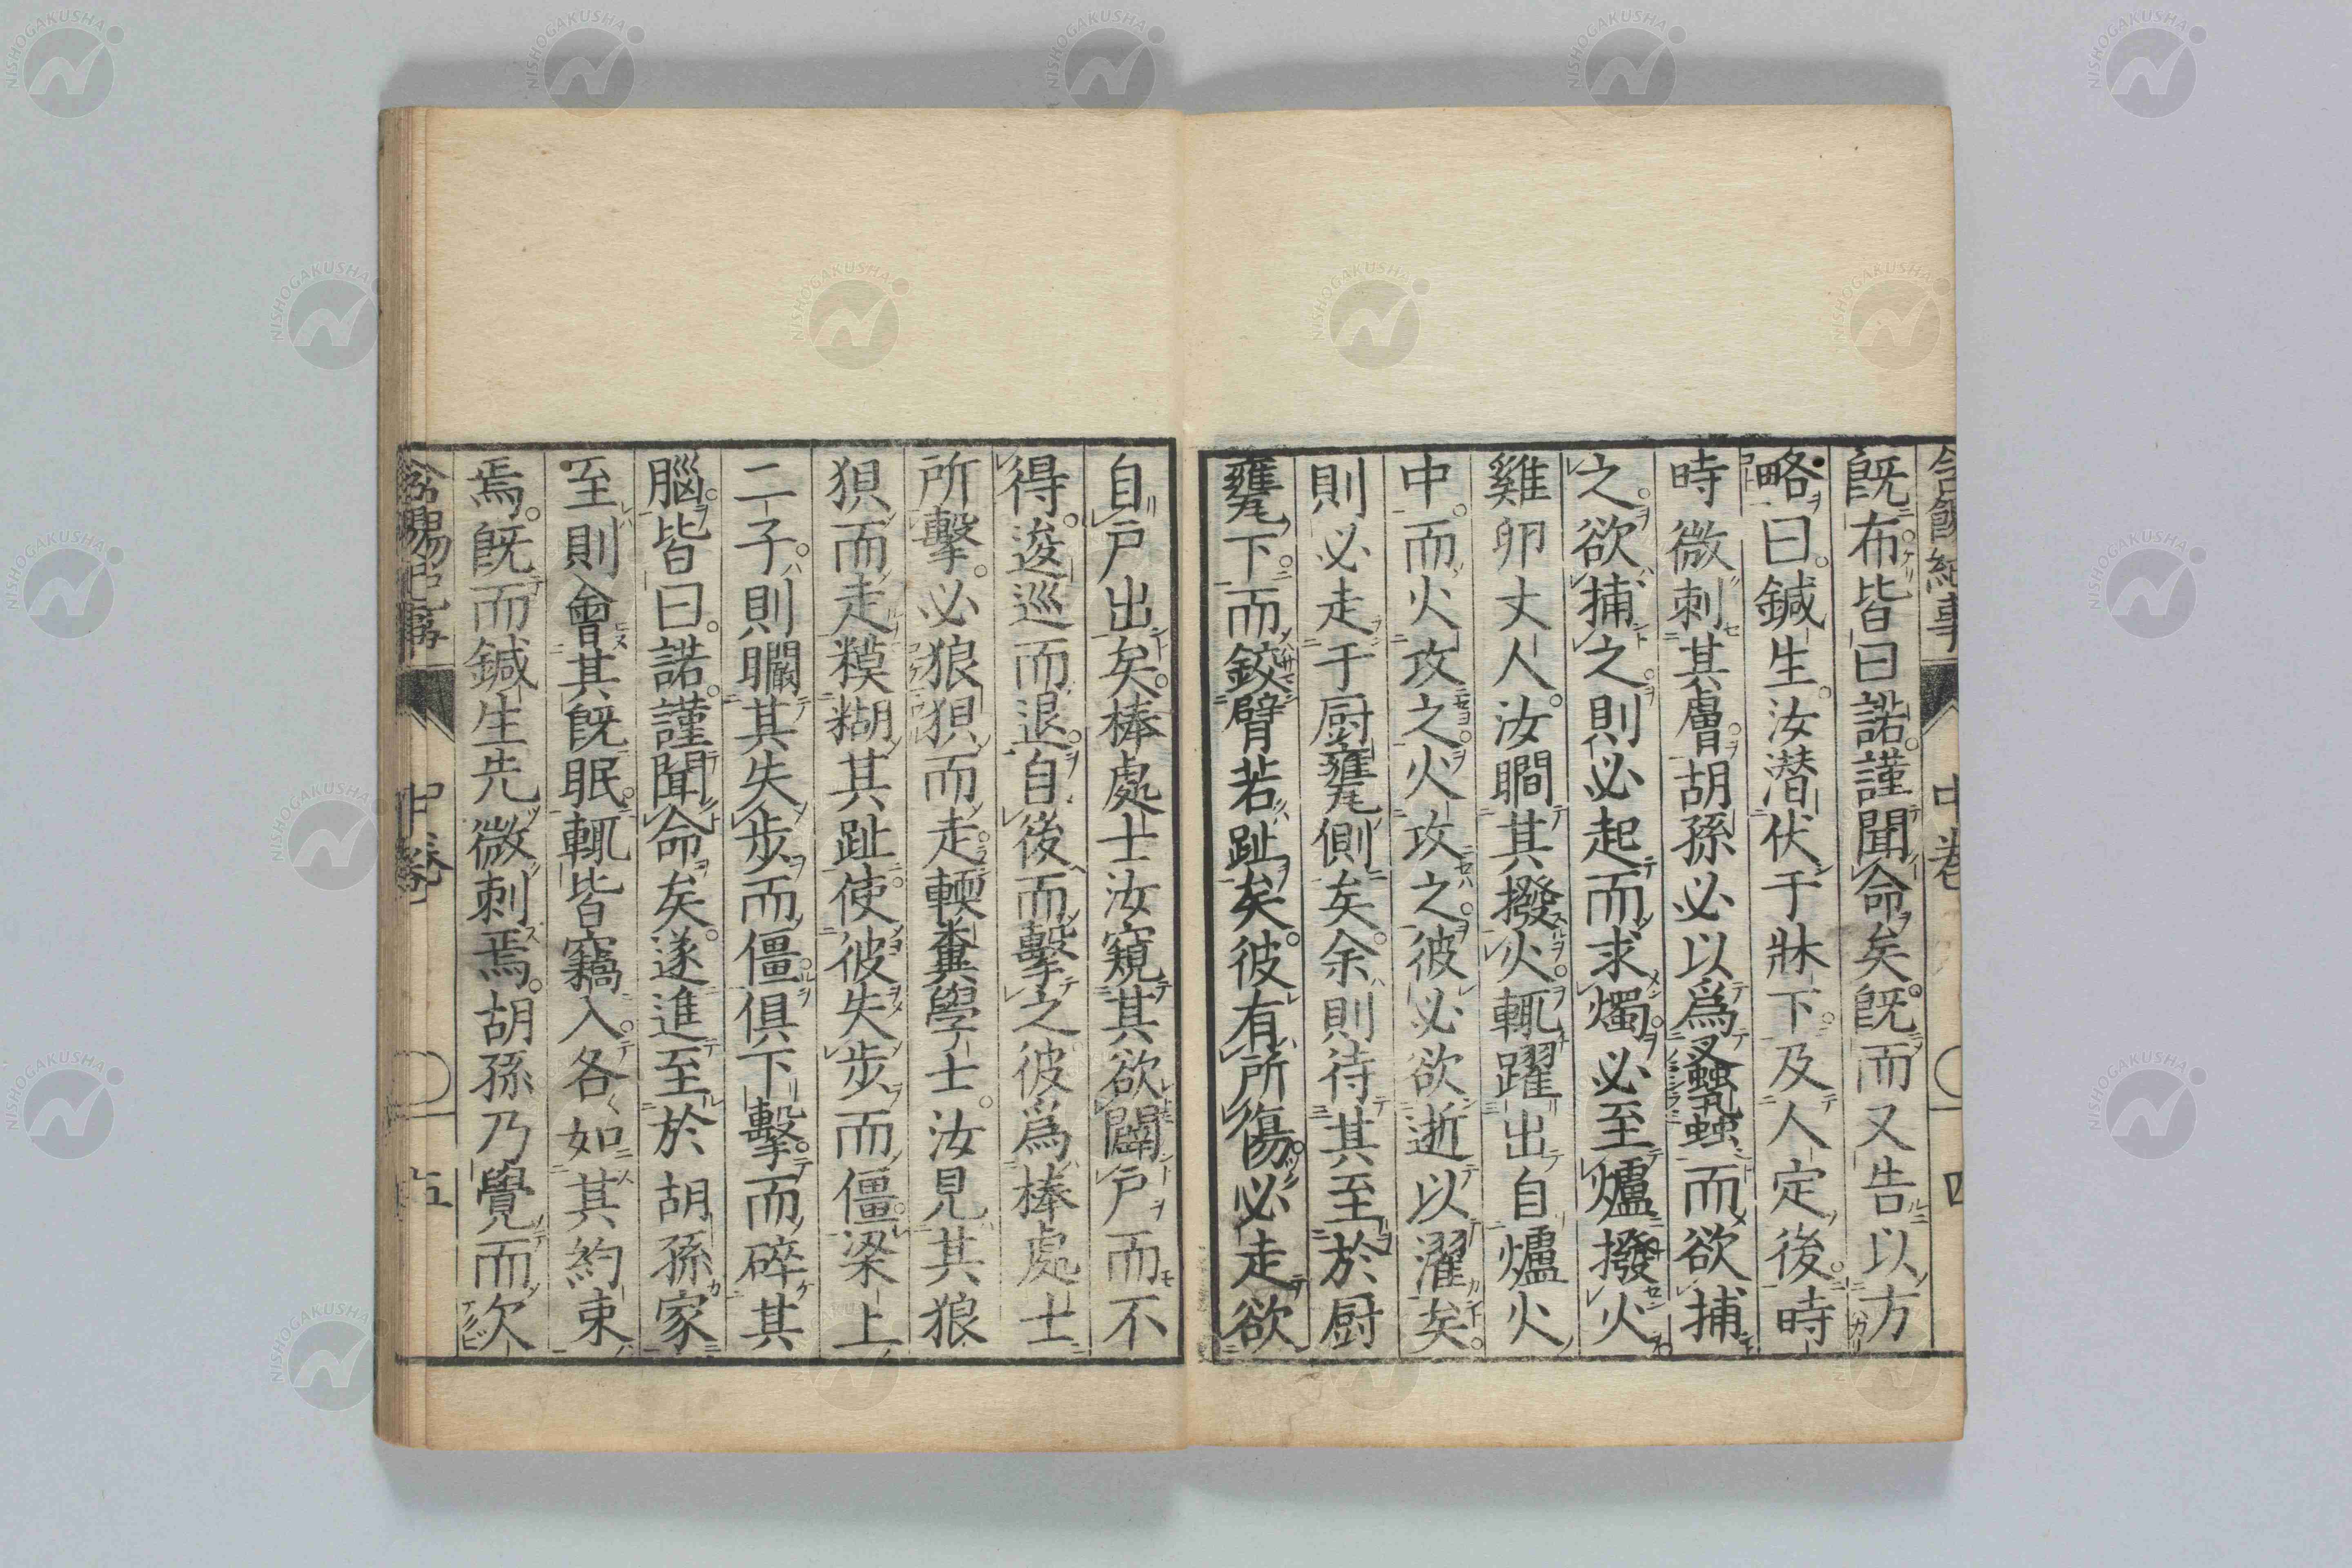 既布皆曰諾謹聞命矣既而又告以方
略曰鍼生汝潜伏于牀下及人定後時
時微刺其膚胡孫必以爲蚤蝨而欲捕
之欲捕之則必起而求燭必至爐撥火
雞卵丈人汝瞷其撥火輒躍出自爐火
中而火攻之火攻之彼必欲逝以濯矣
則必走于厨甕側矣余則待其至於厨
甕下而鉸臂若趾矣彼有所傷必走欲
自戸出矣棒處士汝窺其欲闢戸而不
得逡巡而退自後而擊之彼爲棒處士
所擊必狼狽而走輭糞學士汝見其狼
狽而走糢糊其趾使彼失步而僵梁上
二子則瞷其失步而僵俱下擊而碎其
腦皆曰諾謹聞命矣遂進至於胡孫家
至則會其既眠輒皆竊入各如其約束
焉既而鍼生先微刺焉胡孫乃覺而欠
中卷 五
NISHOGAKUSHA